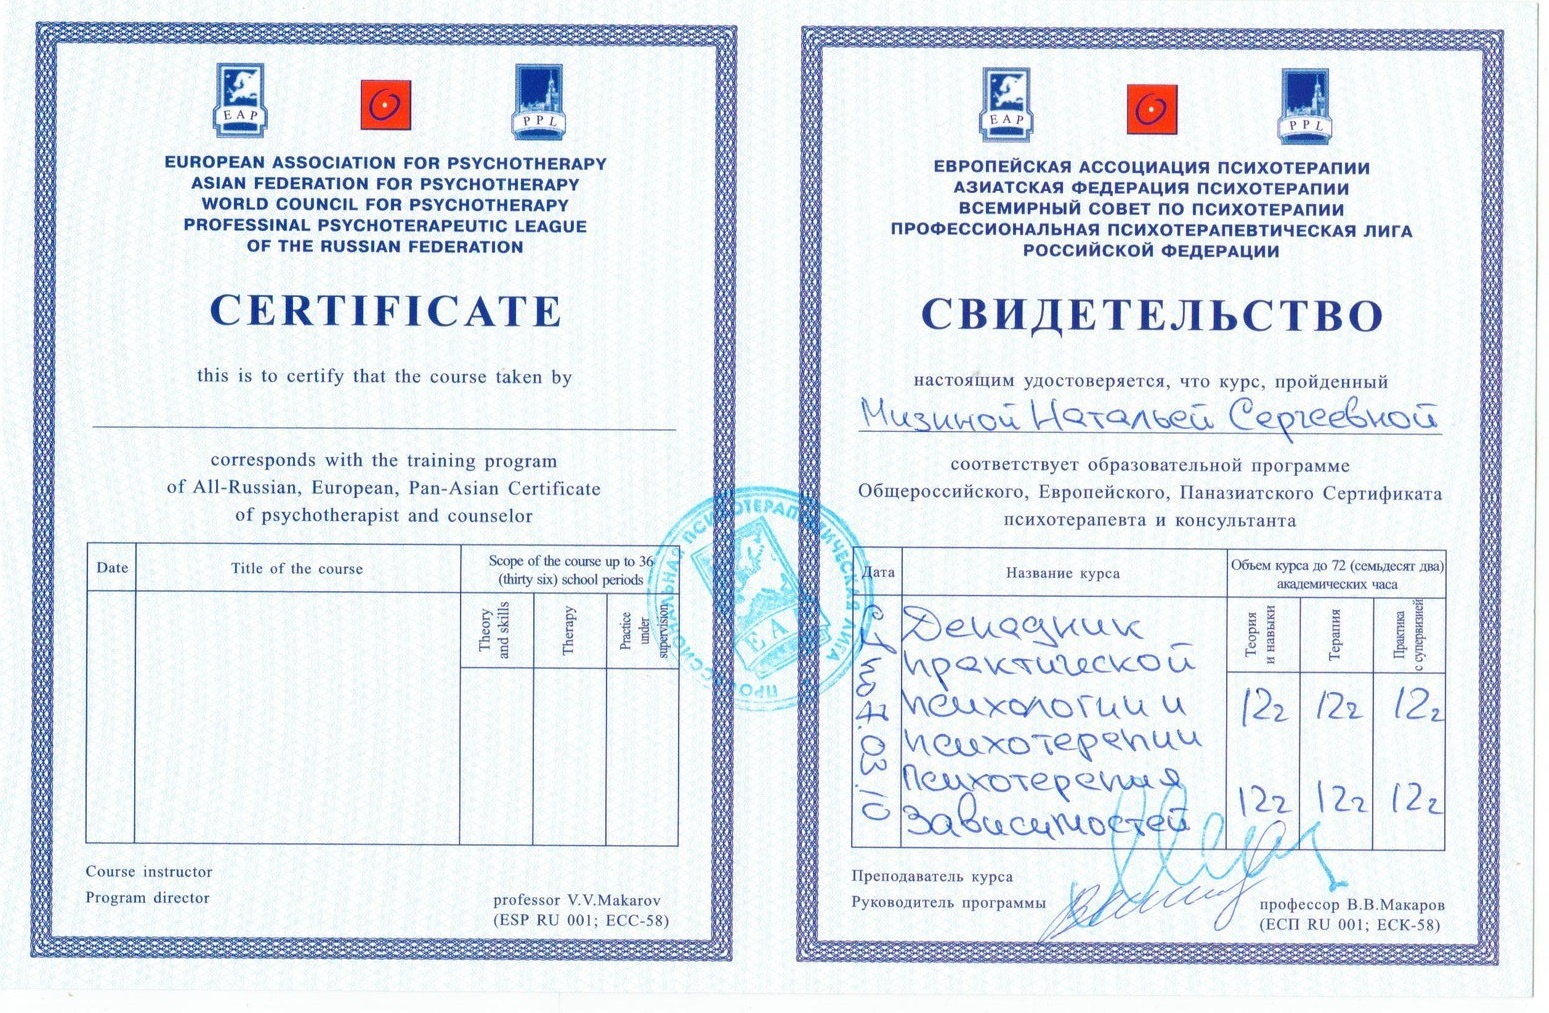 EAP
PPL
EUROPEAN ASSOCIATION FOR PSYCHOTHERAPY
ASIAN FEDERATION FOR PSYCHOTHERAPY
WORLD COUNCIL FOR PSYCHOTHERAPY
PROFESSINAL PSYCHOTERAPEUTIC LEAGUE
OF THE RUSSIAN FEDERATION
CERTIFICATE
this is to certify that the course taken by
corresponds with the training program
of All-Russian, European, Pan-Asian Certificate
of psychotherapist and counselor
Date
Title of the course
Scope of the course up to 36
(thirty six) school periods
Theory
and skills
Therapy
Practice
under
supervision
Course instructor
Program director
professor V.V.Makarov
(ESP RU 001; ECC-58)
ПРОФЕССИОНАЛЬНАЯ ПСИХОТЕРАПЕВТИЧЕСКАЯ ЛИГА
EA
EAP
PPL
ЕВРОПЕЙСКАЯ АССОЦИАЦИЯ ПСИХОТЕРАПИИ
АЗИАТСКАЯ ФЕДЕРАЦИЯ ПСИХОТЕРАПИИ
ВСЕМИРНЫЙ СОВЕТ ПО ПСИХОТЕРАПИИ
ПРОФЕССИОНАЛЬНАЯ ПСИХОТЕРАПЕВТИЧЕСКАЯ ЛИГА
РОССИЙСКОЙ ФЕДЕРАЦИИ
СВИДЕТЕЛЬСТВО
настоящим удостоверяется, что курс, пройденный
Мизиной Натальей Сергеевной
соответствует образовательной программе
Общероссийского, Европейского, Паназиатского Сертификата
психотерапевта и консультанта
Дата
Название курса
Объем курса до 72 (семьдесят два)
академических часа
Теория
и навыки
Терапия
Практика
с супервизией
Декадник
практической
психологии и
психотерепии
Психотерепия
Зависимостей
12г 12г 12г
12г 12г 12г
Преподаватель курса
Руководитель программы
профессор В.В.Макаров
(ЕСП RU 001; ЕСК-58)